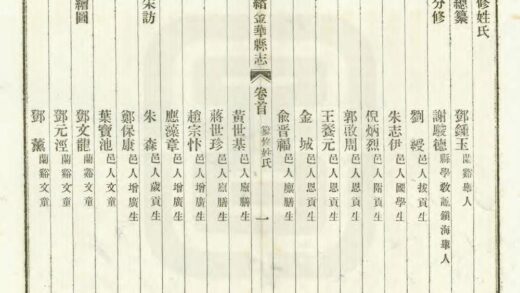 修姓氏
總纂
鄧鍾玉蘭谿舉人
分修
謝駿德縣學教諭鎮海舉人
劉㷉邑人拔貢生
朱志伊邑人國學生
倪炳烈邑人附貢生
郭啟周邑人恩貢生
王養元邑人恩貢生
金城邑人恩貢生
俞晋福邑人廩膳生
金華縣志
卷首
纂修姓氏
一
黃世基邑人廩膳生
蔣世珍邑人廩膳生
趙宗忭邑人增廣生
應藻章邑人增廣生
采訪
朱森邑人歲貢生
鄭保康邑人增廣生
葉寶池邑人文童
繪圖
鄧文龍蘭谿文童
鄧元涇蘭谿文童
鄧薰蘭谿文童